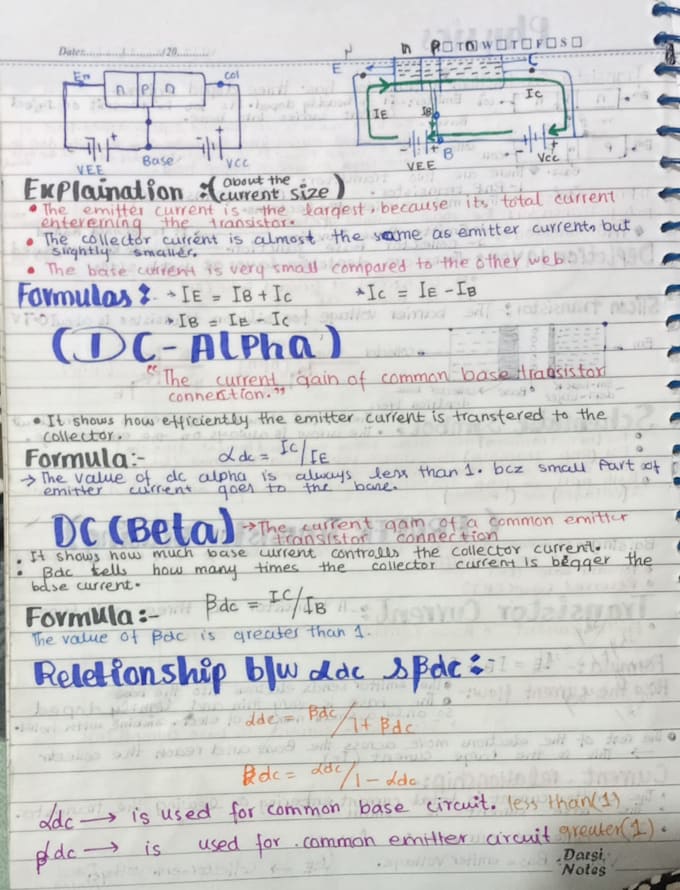 Date:............/........../20.........
M T W T F S
n p
Em n p n Col
E C
IE IB IC
VEE Base VCC
VEE B VCC
Explaination :* (about the current size)
• The emitter current is the largest, because its total current
entereming the transistor.
• The collector current is almost the same as emitter current, but
slightly smaller.
• The base current is very small compared to the other web.
Formulas : * IE = IB + IC *IC = IE - IB
* IB = IE - IC
(DC-Alpha)
"The current gain of common base transistor
connection."
• It shows how efficiently the emitter current is transfered to the
collector.
Formula:- αdc = IC/IE
→ The value of dc alpha is always less than 1. bcz small Part of
emitter current goes to the base.
DC (Beta) → The current gain of a common emitter
transistor connection
: It shows how much base current controlls the collector current.
: Bdc tells how many times the collector current is bigger the
base current.
Formula:- βdc = IC/IB
The value of βdc is greater than 1.
Reletionship b/w αdc & βdc :
αdc = βdc/1+ βdc
βdc = αdc/1 - αdc
αdc → is used for common base circuit. less than(1)
βdc → is used for common emitter circuit greater(1).
Darsi
Notes